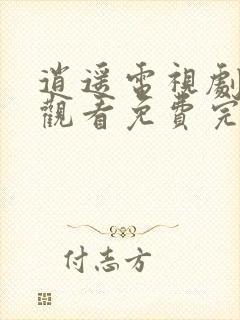 逍遥電視劇
觀看免費完
付志方